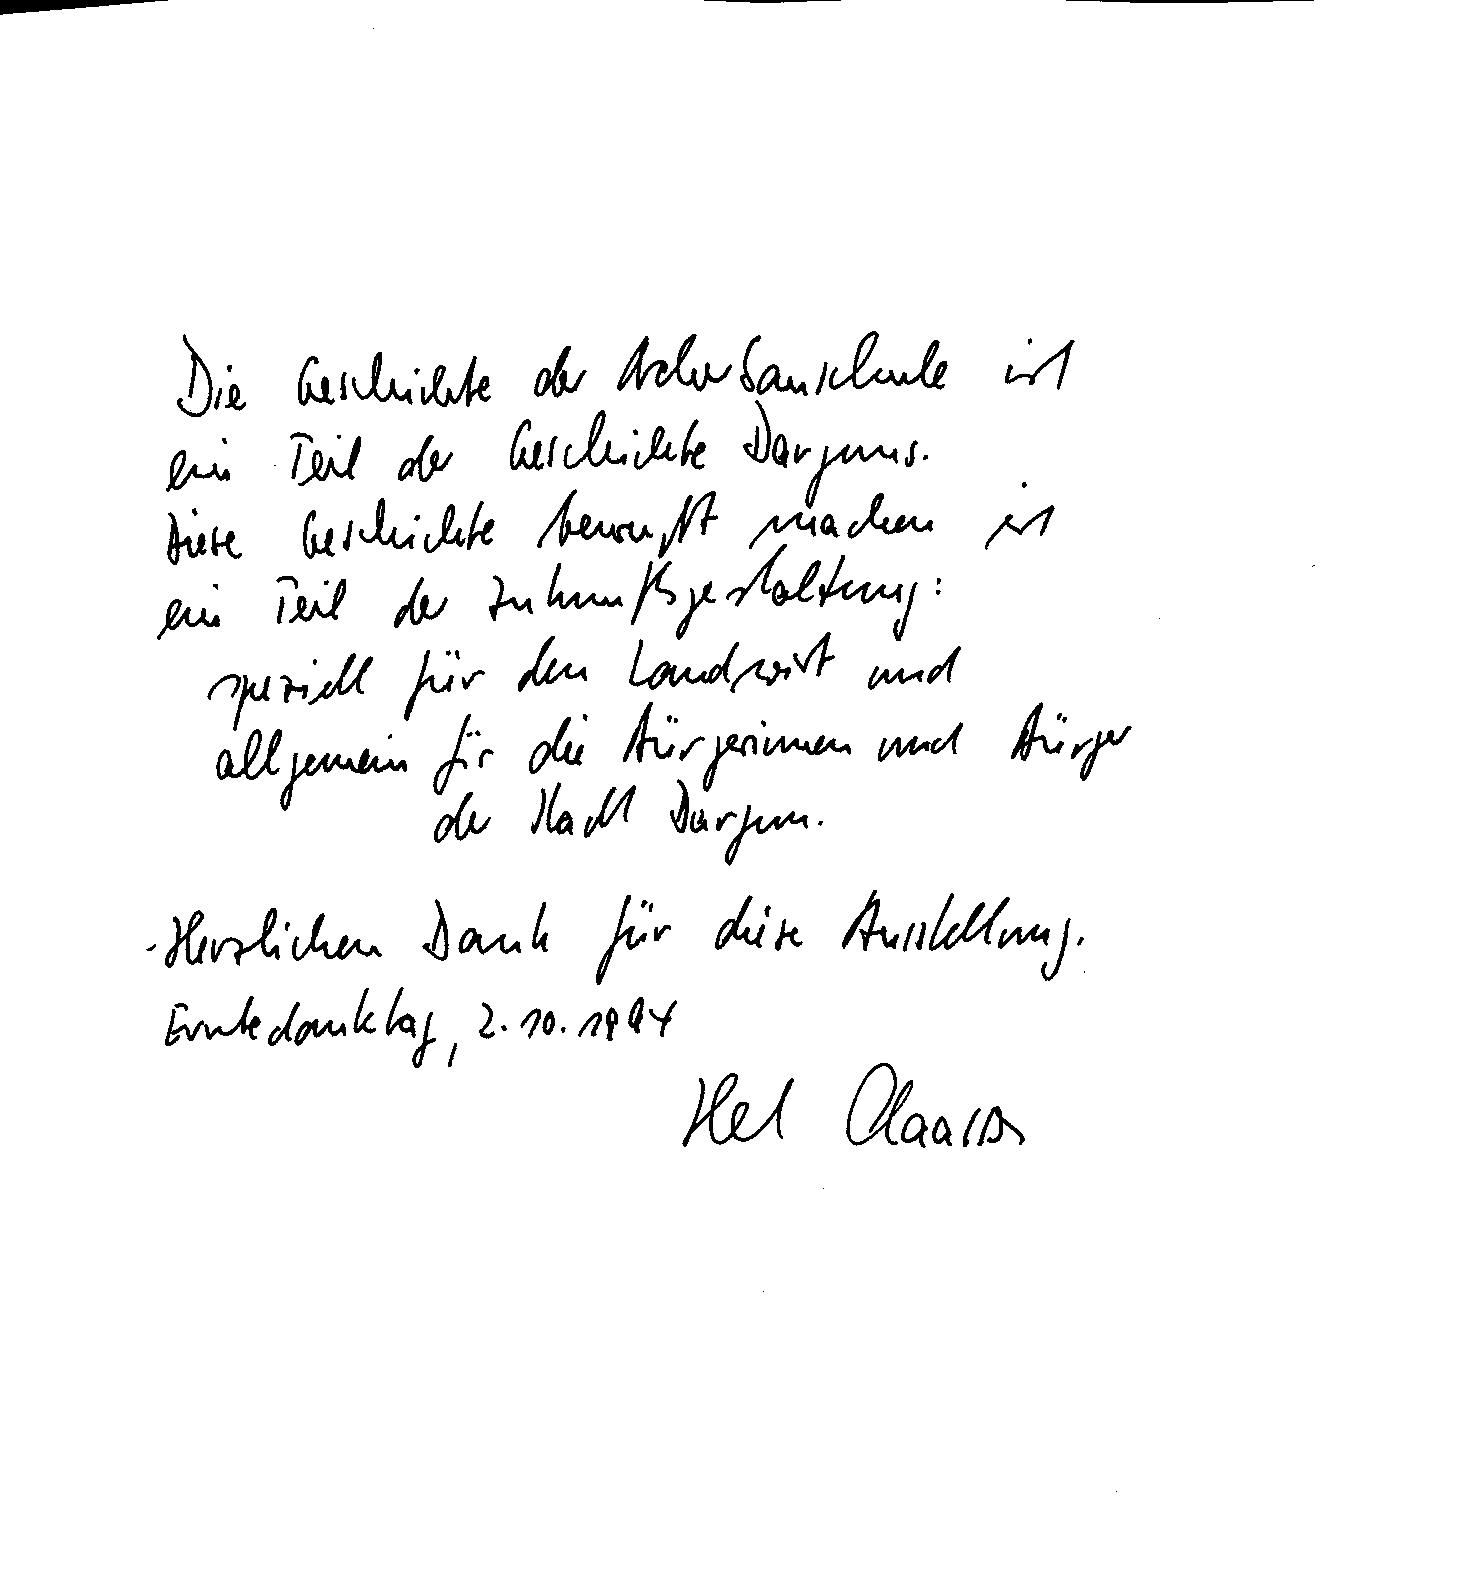 Die Geschichte der Ackerbauschule ist
ein Teil der Geschichte Darguns.
Diese Geschichte bewußt machen ist
ein Teil der Zukunftsgestaltung:
speziell für den Landwirt und
allgemein für die Bürgerinnen und Bürger
der Stadt Dargun.
Herzlichen Dank für diese Ausstellung.
Erntedanktag, 2.10.1994